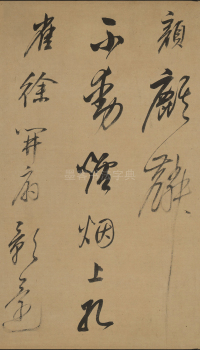 顏麒麟
不動爐烟上孔
雀徐開扇影還